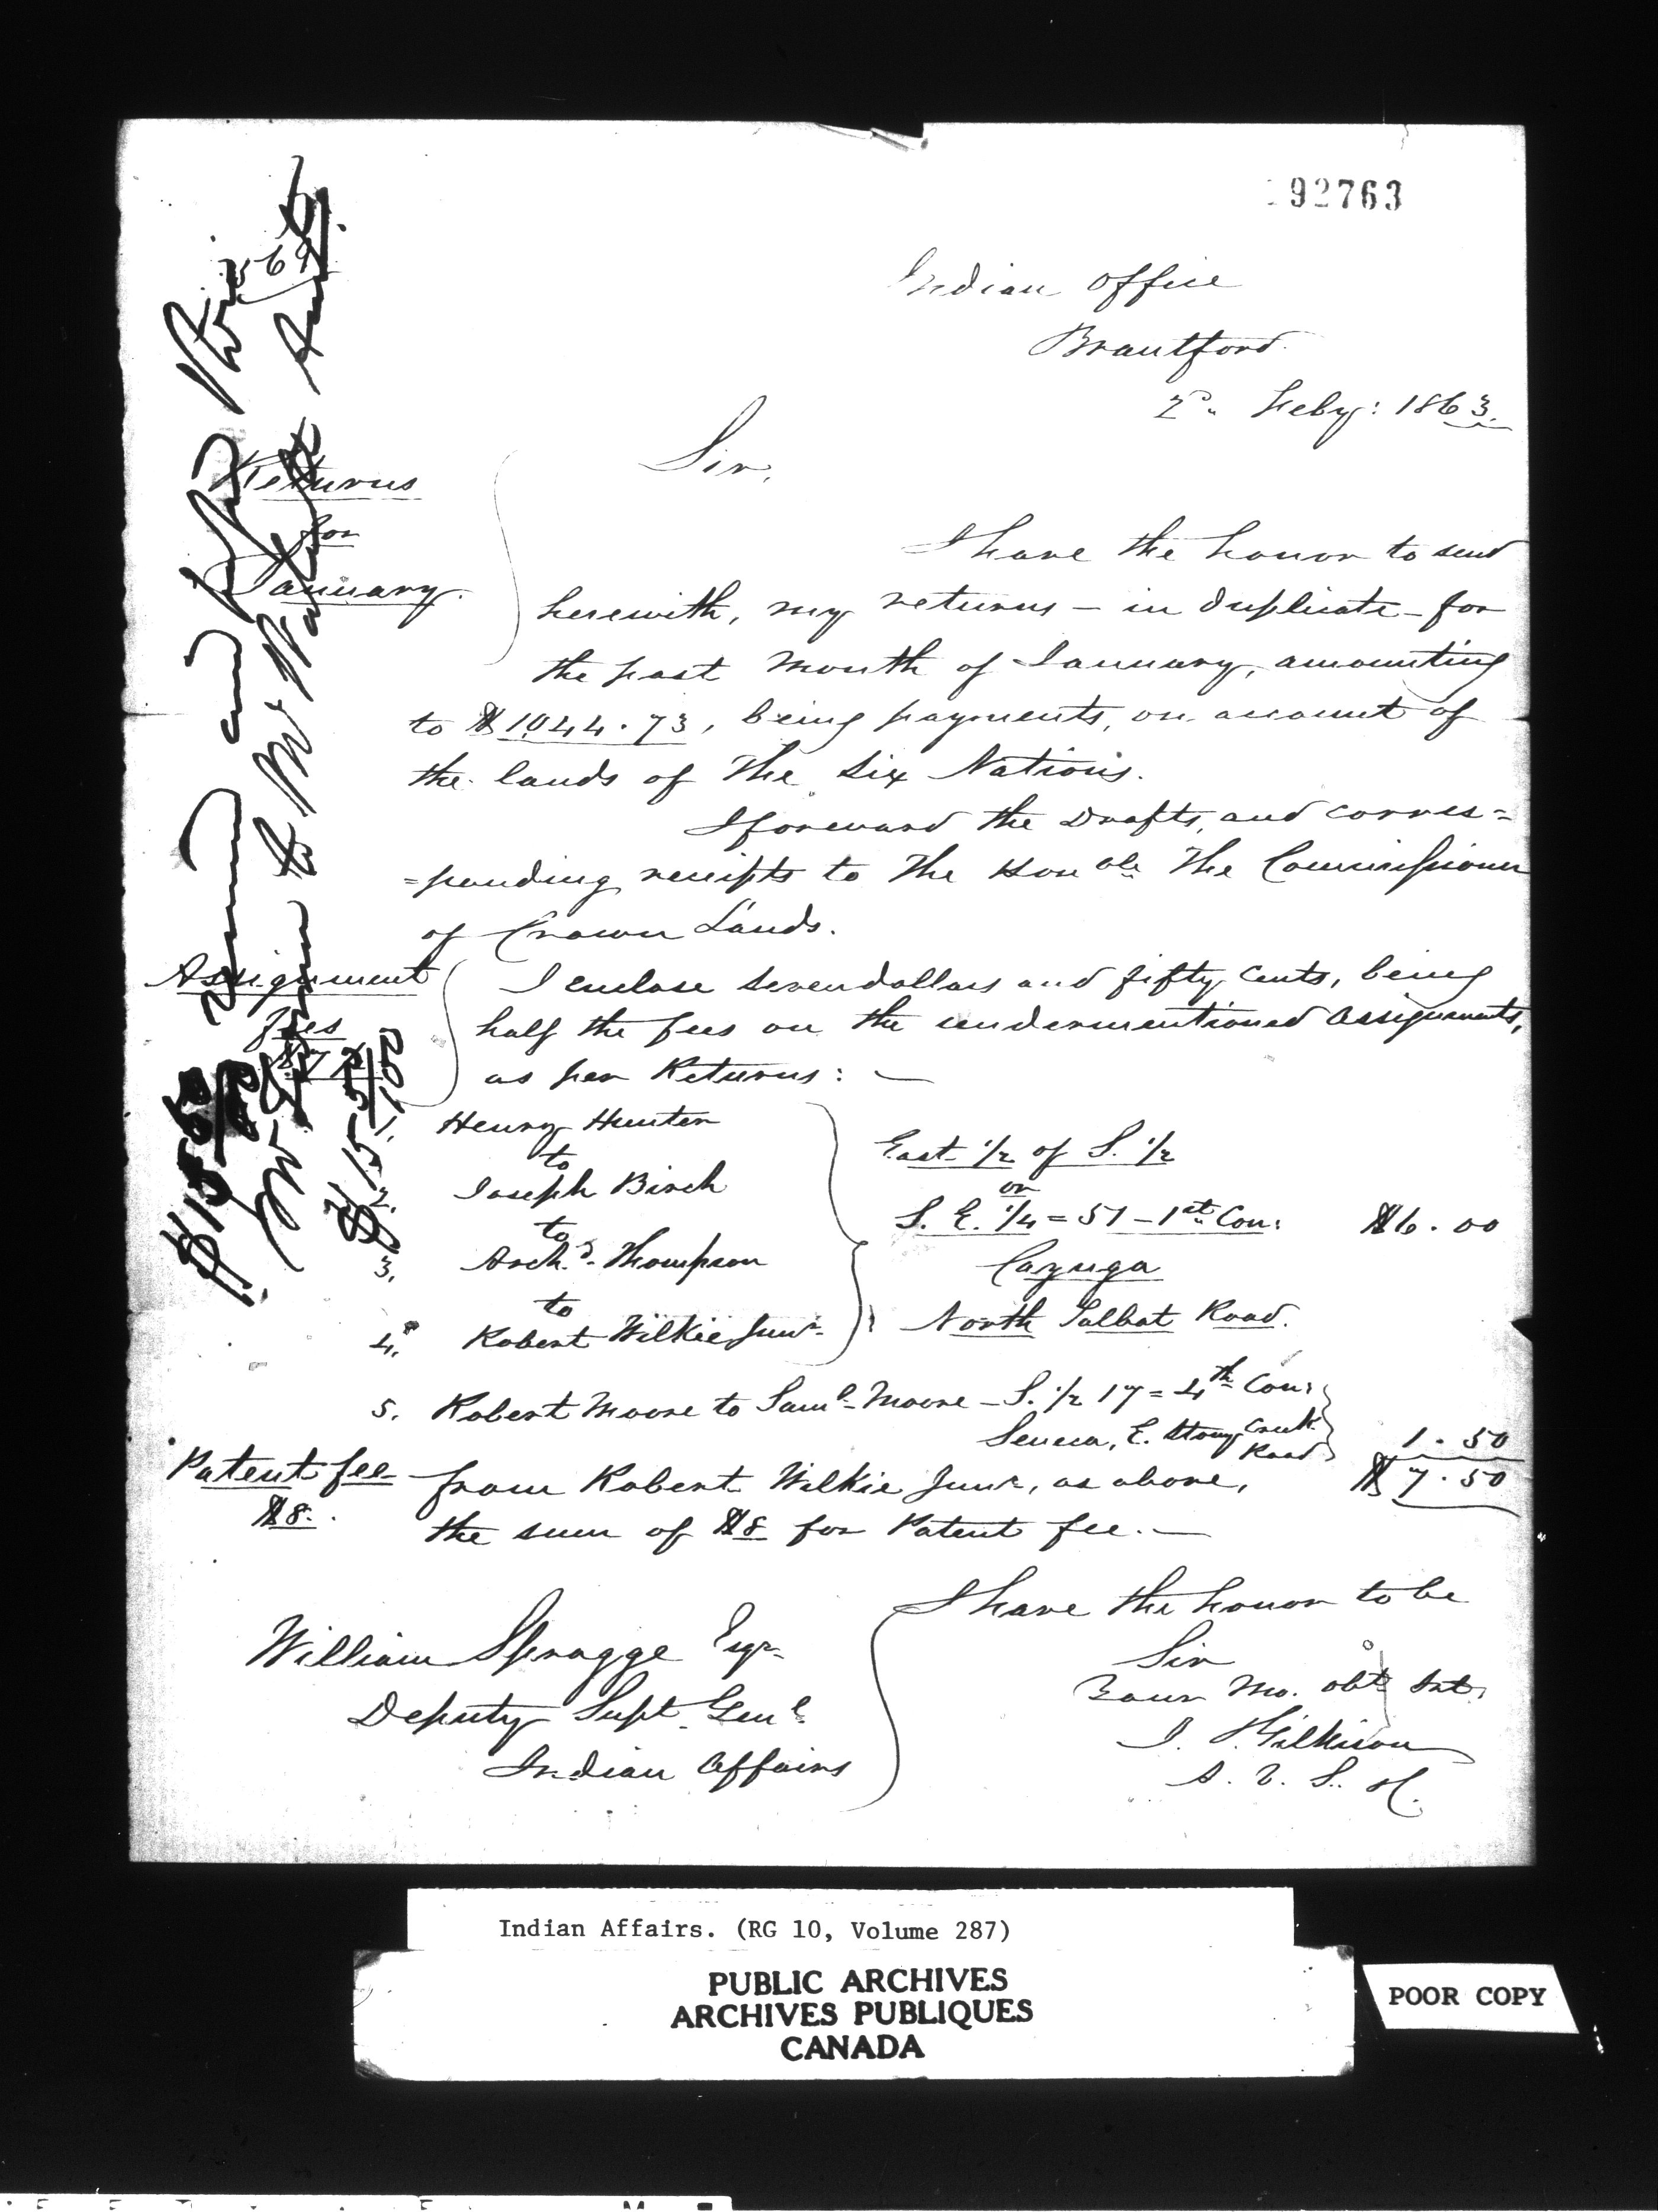 92763
Indian Office
Brantford.
2d. Feby: 1863.
Sir,
Returns
for
January.
I have the honor to send
herewith, my returns – in duplicate – for
the past month of January, amounting
to $1044.73, being payments, on account of
the lands of The Six Nations.
I forward the Drafts, and corres=
=ponding receipts to The Honble. The Commissioner
of Crown Lands.
Assignment
fees
I enclose seven dollars and fifty cents, being
half the fees on the undermentioned assignments,
as per Returns: —
1. Henry Hunter
to
2. Joseph Birch
to
3. Archd. Thompson
to
4. Robert Wilkie Junr.
East 1/2 of S. 1/2
or
S. E. 1/4 = 51 – 1st Con:
Cayuga
North Talbot Road.
$6.00
5. Robert Moore to Saml. Moore – S. 1/2 17 = 4th Con:
Seneca, E. Stony Creek
Road
1.50
$7.50
Patent fee
$8.
from Robert Wilkie Junr, as above,
the sum of $8 for Patent fee. —
I have the honor to be
Sir
Your Mo. obt. Svt.
J. Gilkison
William Spragge Esqr.
Deputy Supt. Genl.
Indian Affairs
$15 50/100
Indian Affairs. (RG 10, Volume 287)
PUBLIC ARCHIVES
ARCHIVES PUBLIQUES
CANADA
POOR COPY